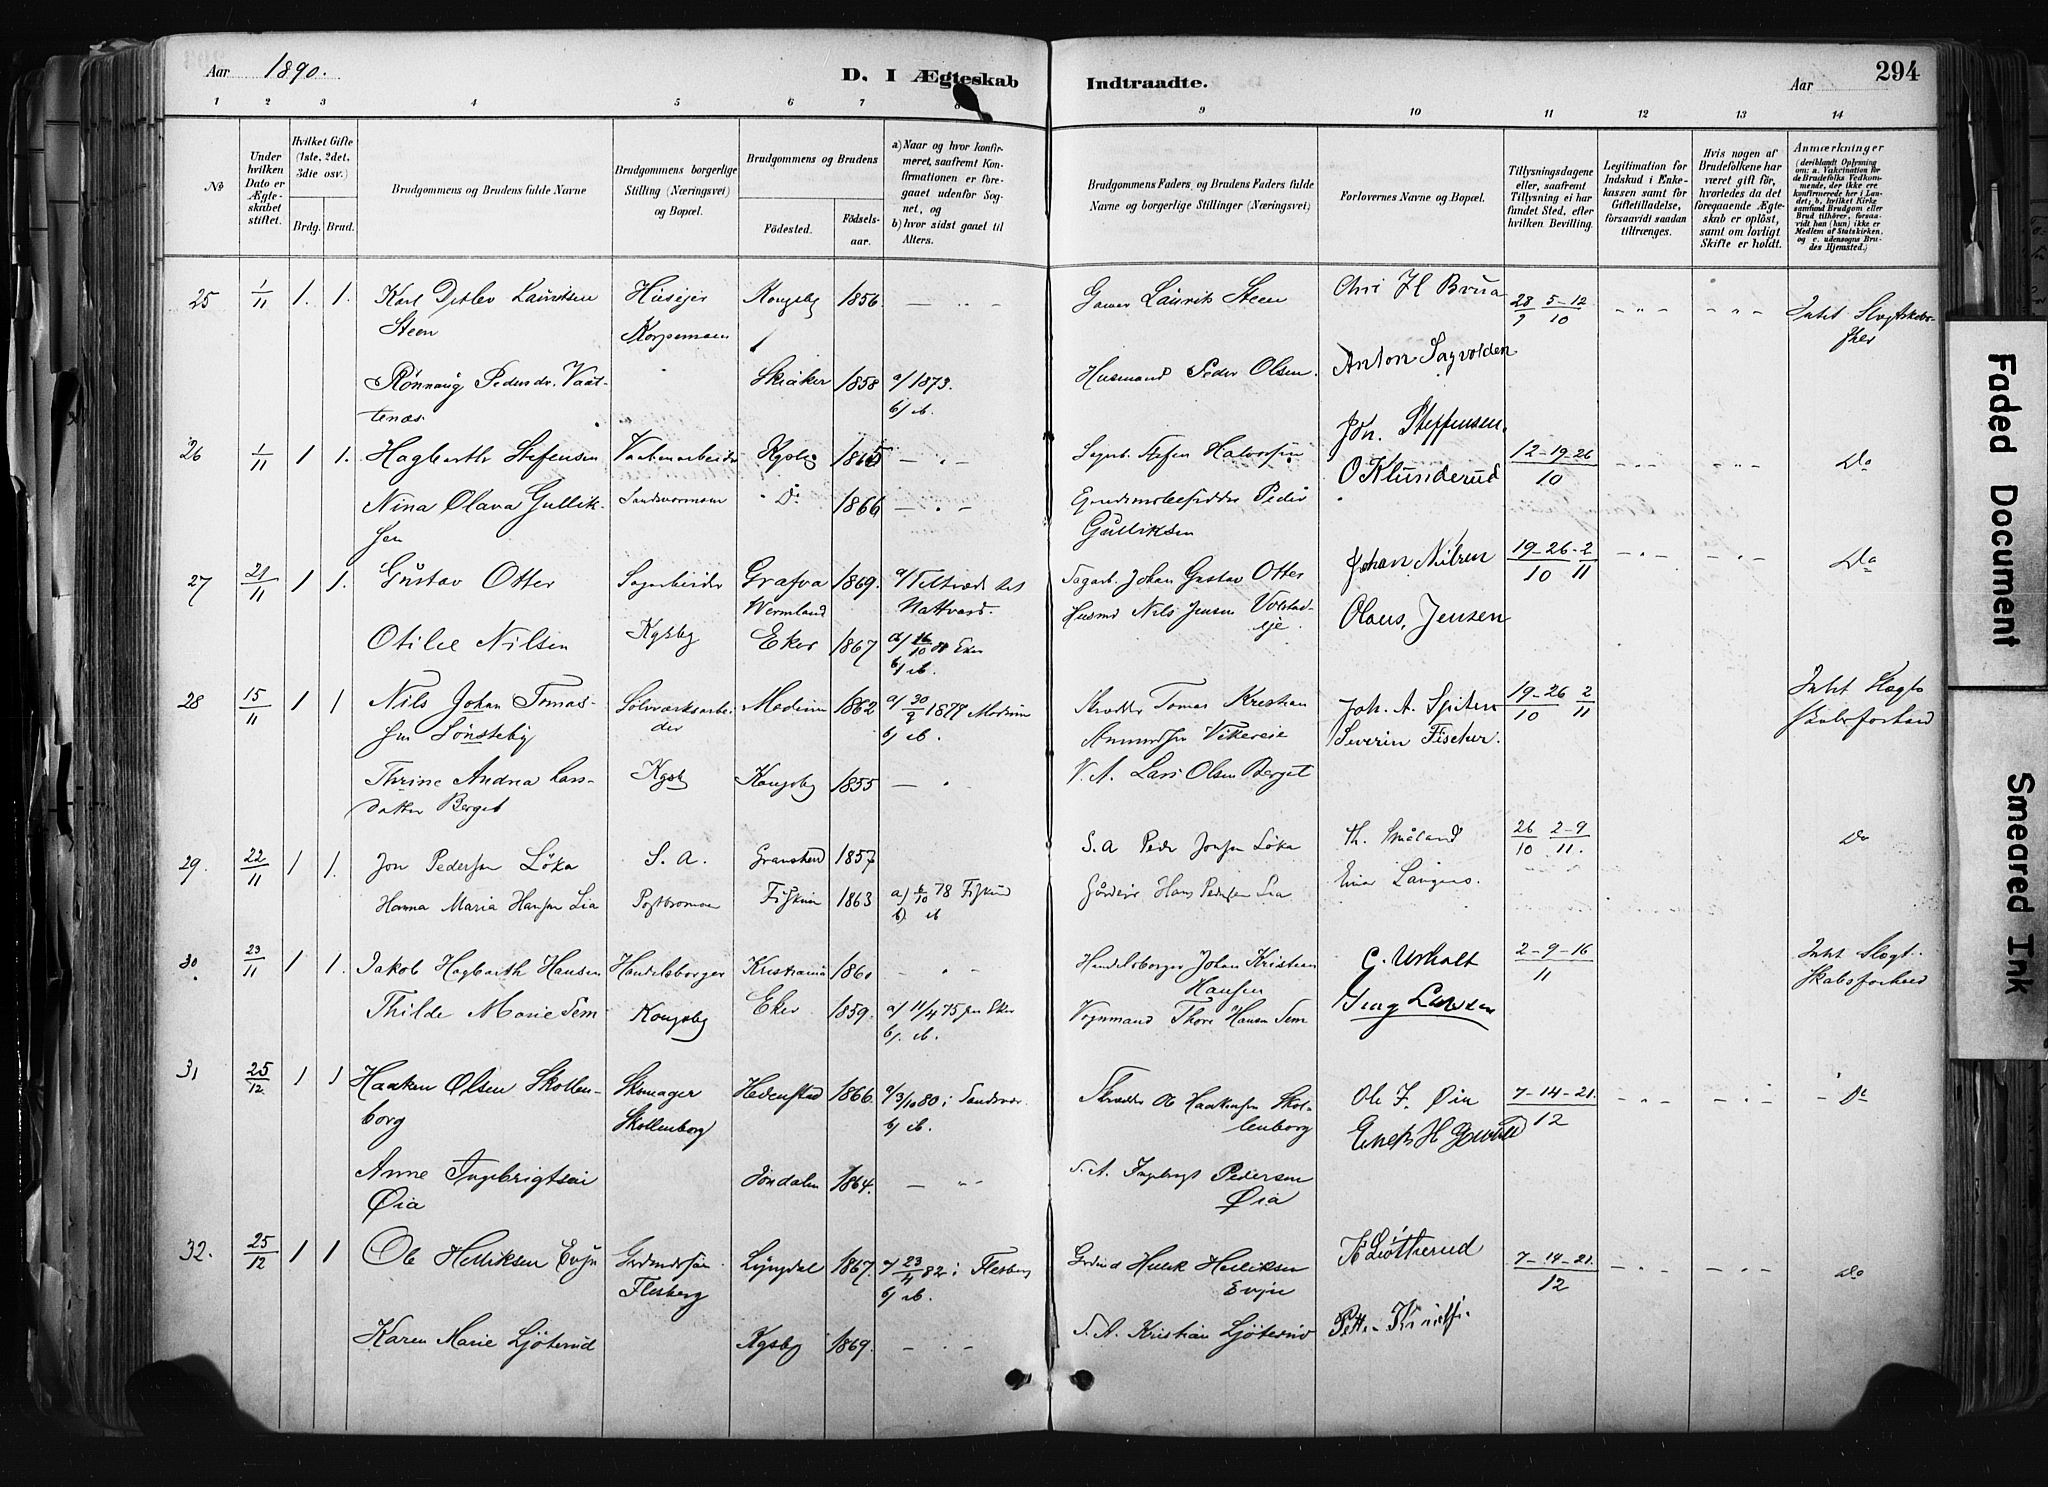 Aar 1890.
D. I Ægteskab Indtraadte.
Aar
294
1 2 3 4 5 6 7 8 9 10 11 12 13 14
No
Under hvilken Dato er Ægteskabet stiftet.
Hvilket Gifte (1ste, 2det, 3die osv.)
Brdg. Brud.
Brudgommens og Brudens fulde Navne
Brudgommens borgerlige Stilling (Næringsvei) og Bopæl.
Brudgommens og Brudens
Fødested. Fødselsaar.
a) Naar og hvor konfirmeret, saafremt Konfirmationen er foregaaet udenfor Sognet, og
b) hvor sidst gaaet til Alters.
Brudgommens Faders og Brudens Faders fulde Navne og borgerlige Stillinger (Næringsvei)
Forlovernes Navne og Bopæl.
Tillysningsdagene eller, saafremt Tillysning ei har fundet Sted, efter hvilken Bevilling.
Legitimation for Indskud i Enkekassen samt for Giftetilladelse, forsaavidt saadan tiltrænges.
Hvis nogen af Brudefolkene har været gift før, hvorledes da det foregaaende Ægteskab er opløst, samt om lovligt Skifte er holdt.
Anmærkninger (deriblandt Oplysning om: a. Vaccination for de Brudefolks Vedkommende, der ikke ere konfirmerede her i Landet; b. hvilket Kirkesamfund Brudgom eller Brud tilhører, forsaavidt han (hun) ikke er Medlem af Statskirken, og c. udensogns Brudes Hjemsted.)
25 1/11 1. 1. Karl Detlev Lauritsen Husejer Kongsbg 1856 Lauritz Steen Chri H Brua 28 5-12 / 9 10
Steen Korpsmoen
Rönnaug Pedersdr. Vaat- Skiaker 1858 a/ 1873. Husmand Peder Olsen. Anton Sagvolden
tenæs b/ ib.
26 1/11 1 1. Hagbarth Stefensen Vaabenarbeider Kgsbg 1865 Stefen Halvorsen Joh. Steffensen. 12-19-26 / 10 Do
Nina Olava Gullik- Sandsværmoen Do 1866 Peder O Klunderud
sen Gulliksen
27 21/11 1 1. Gustav Otter Sagarbeider Grafva 1869. Sagarb. Johan Gustav Otter Johan Nilsen 19-26-2 / 10 11 Do
Wermland Nattvard. Husmd Nils Jensen Volstad-
Otilie Nilsen Kgsbg Eker 1867 a/ 16/10 Eker eje. Olaus Jensen
b/ ib
28 15/11 1 1 Nils Johan Tomas- Sölvverksarbei- Modum 1862 a/ 30/9 1877 Modum Skrædder Tomas Kristian Joh. A. Spiten 19-26 2 / 10 11 Intet Slægt-
sen Sönsteby der b/ ib. Amundsen Vikereie Severin Fischer. skabsforhold
Thrine Andrea Lars- Kgsb Kongsbg 1855 V. A. Lars Olsen Berget
datter Berget
29. 22/11 1 1. Jon Pedersen Löka S. A. Gransherd 1857 S. A Peder Jonsen Löka Th. Småland 26 2-9 / 10 11. Do
Hanna Maria Hansen Lia Fiskum 1863 a) 6/10 78 Fiskum Gårdeier Hans Pedersen Lia Einar Langeres.
b) ib
30 23/11 1 1. Jakob Hagbarth Hansen Handelsborger Kristiania 1860 Handelsborger Johan Kristian C. Urholt 2-9-16 / 11 Intet Slægt-
Hansen skabsforhold
Thilde Marie Sem Kongsbg Eker 1859. a/ 11/4 75 Eker Vognmand Thore Hansen Sem Georg Larsen
b/. ib.
31 25/12 1 1 Haaken Olsen Skollen- Skomager Hedenstad 1866. a/ 3/10 80 i Sandsvær Skrædder Ole Haakensen Skol- Ole J. Øia 7-14-21. / 12 Do
borg Skollenborg b/ ib. lenborg
Anne Ingebrigtsen Jondalen 1864. S. A. Ingebrigt Pedersen
Øia Øia
32. 25/12 1 1 Ole Helliksen Evju Gaardmandssön Lyngdal 1867. a/ 23/4 82 i Flesberg Hellik Helliksen 7-14-21. / 12 Do
Flesberg b/ ib. Evju
Karen Marie Ljöterud Kgsbg 1869. S. A. Kristian Ljöterud
Faded Document
Smeared Ink